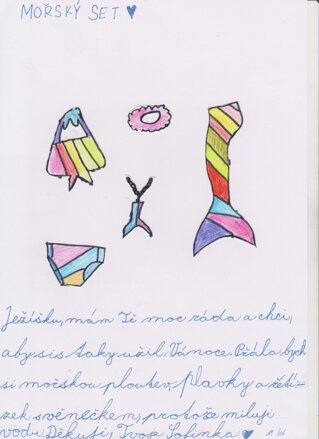 MOŘSKÝ SET ♥
Ježíšku, mám Tě moc ráda a chci,
aby sis taky užil Vánoce. Přála bych
si mořskou ploutev, plavky a řetí-
zek s věnečkem, protože miluji
vodu. Děkuji, Tvoje Sofinka ♥